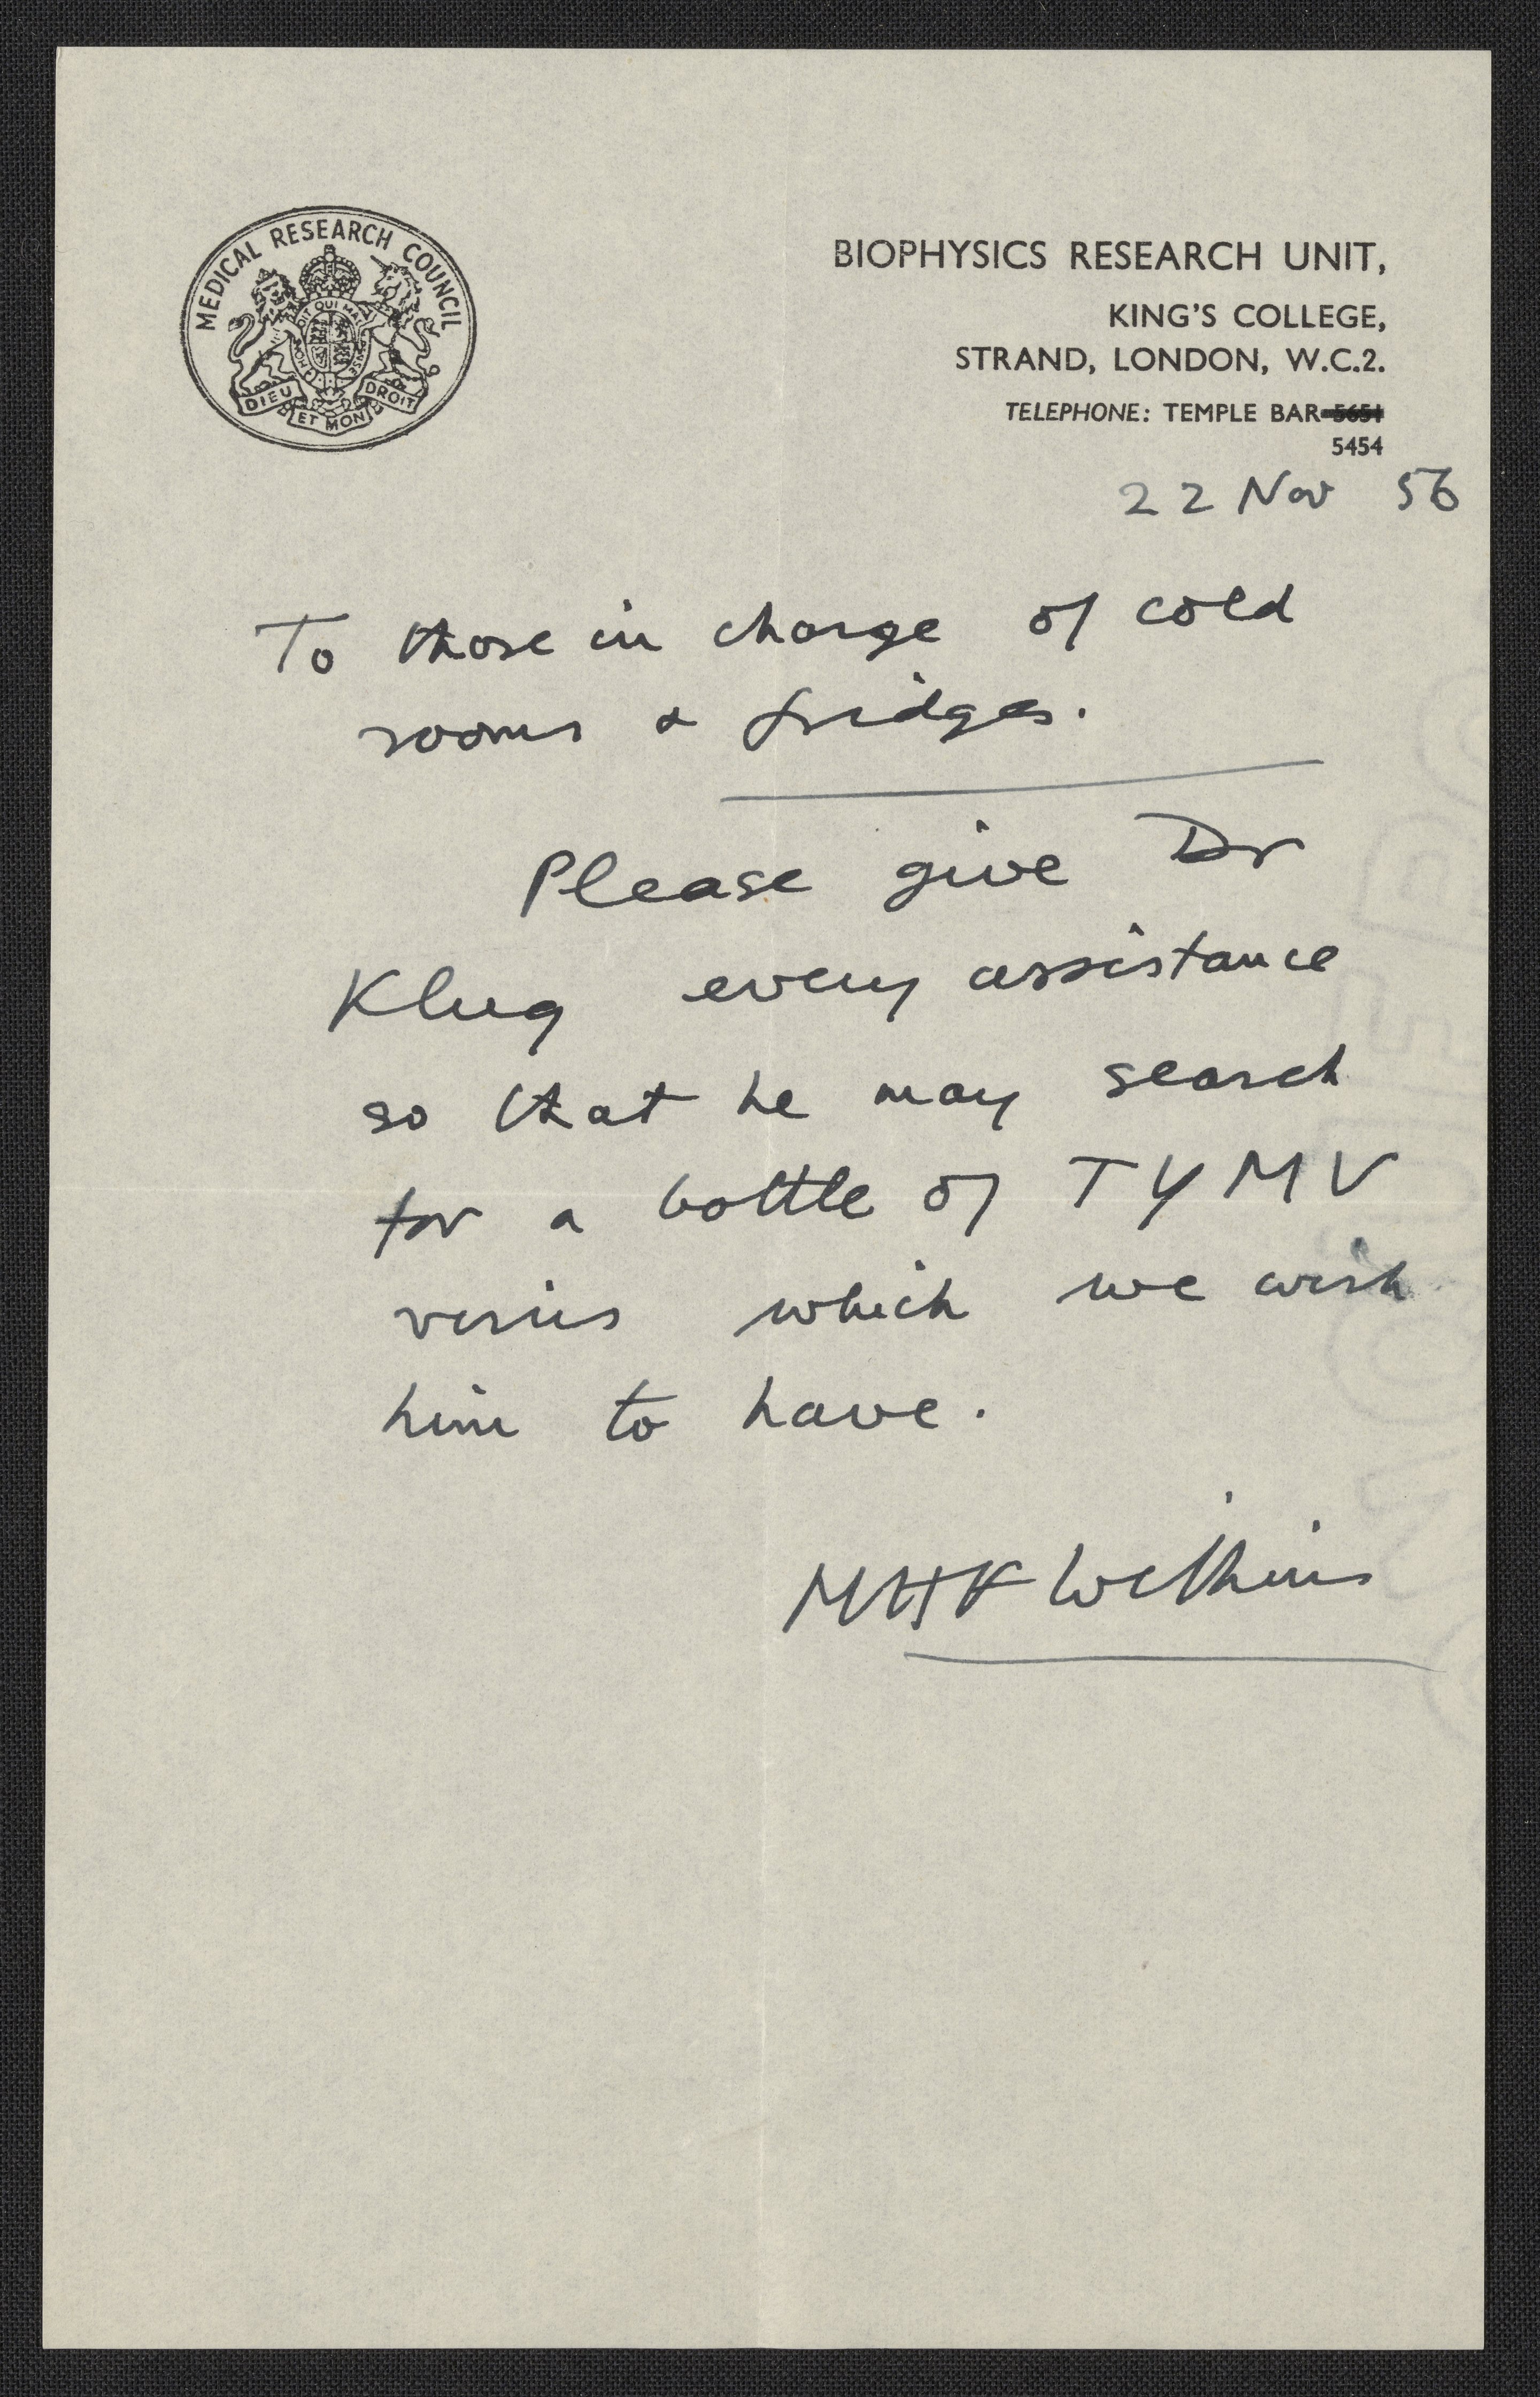 MEDICAL RESEARCH COUNCIL
HONI SOIT QUI MAL Y PENSE
DIEU ET MON DROIT
BIOPHYSICS RESEARCH UNIT,
KING'S COLLEGE,
STRAND, LONDON, W.C.2.
TELEPHONE: TEMPLE BAR 5651
5454
22 Nov 56
To those in charge of cold
rooms & fridges.
Please give Dr
Klug every assistance
so that he may search
for a bottle of TYMV
virus which we wish
him to have.
MHF Wilkins